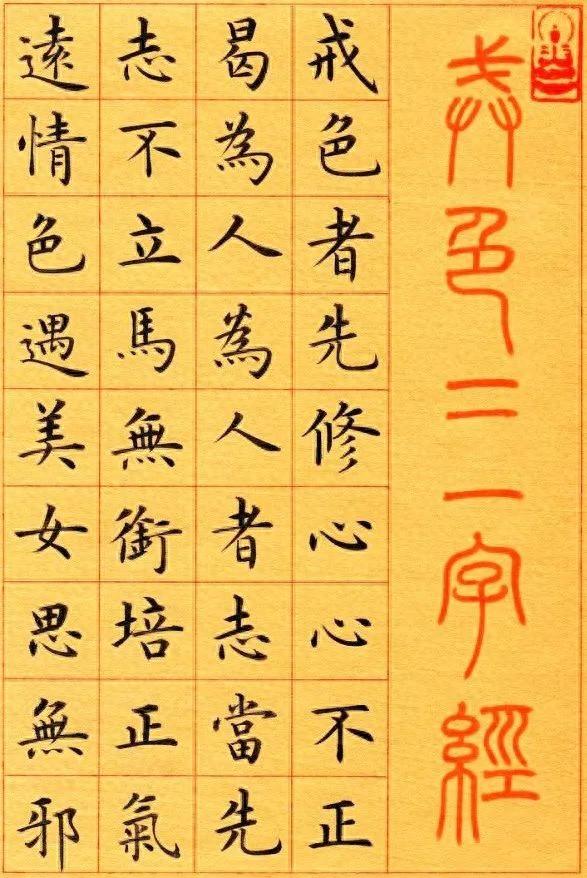 戒色三字經
戒色者先修心心不正
曷為人為人者志當先
志不立馬無銜培正氣
遠情色遇美女思無邪